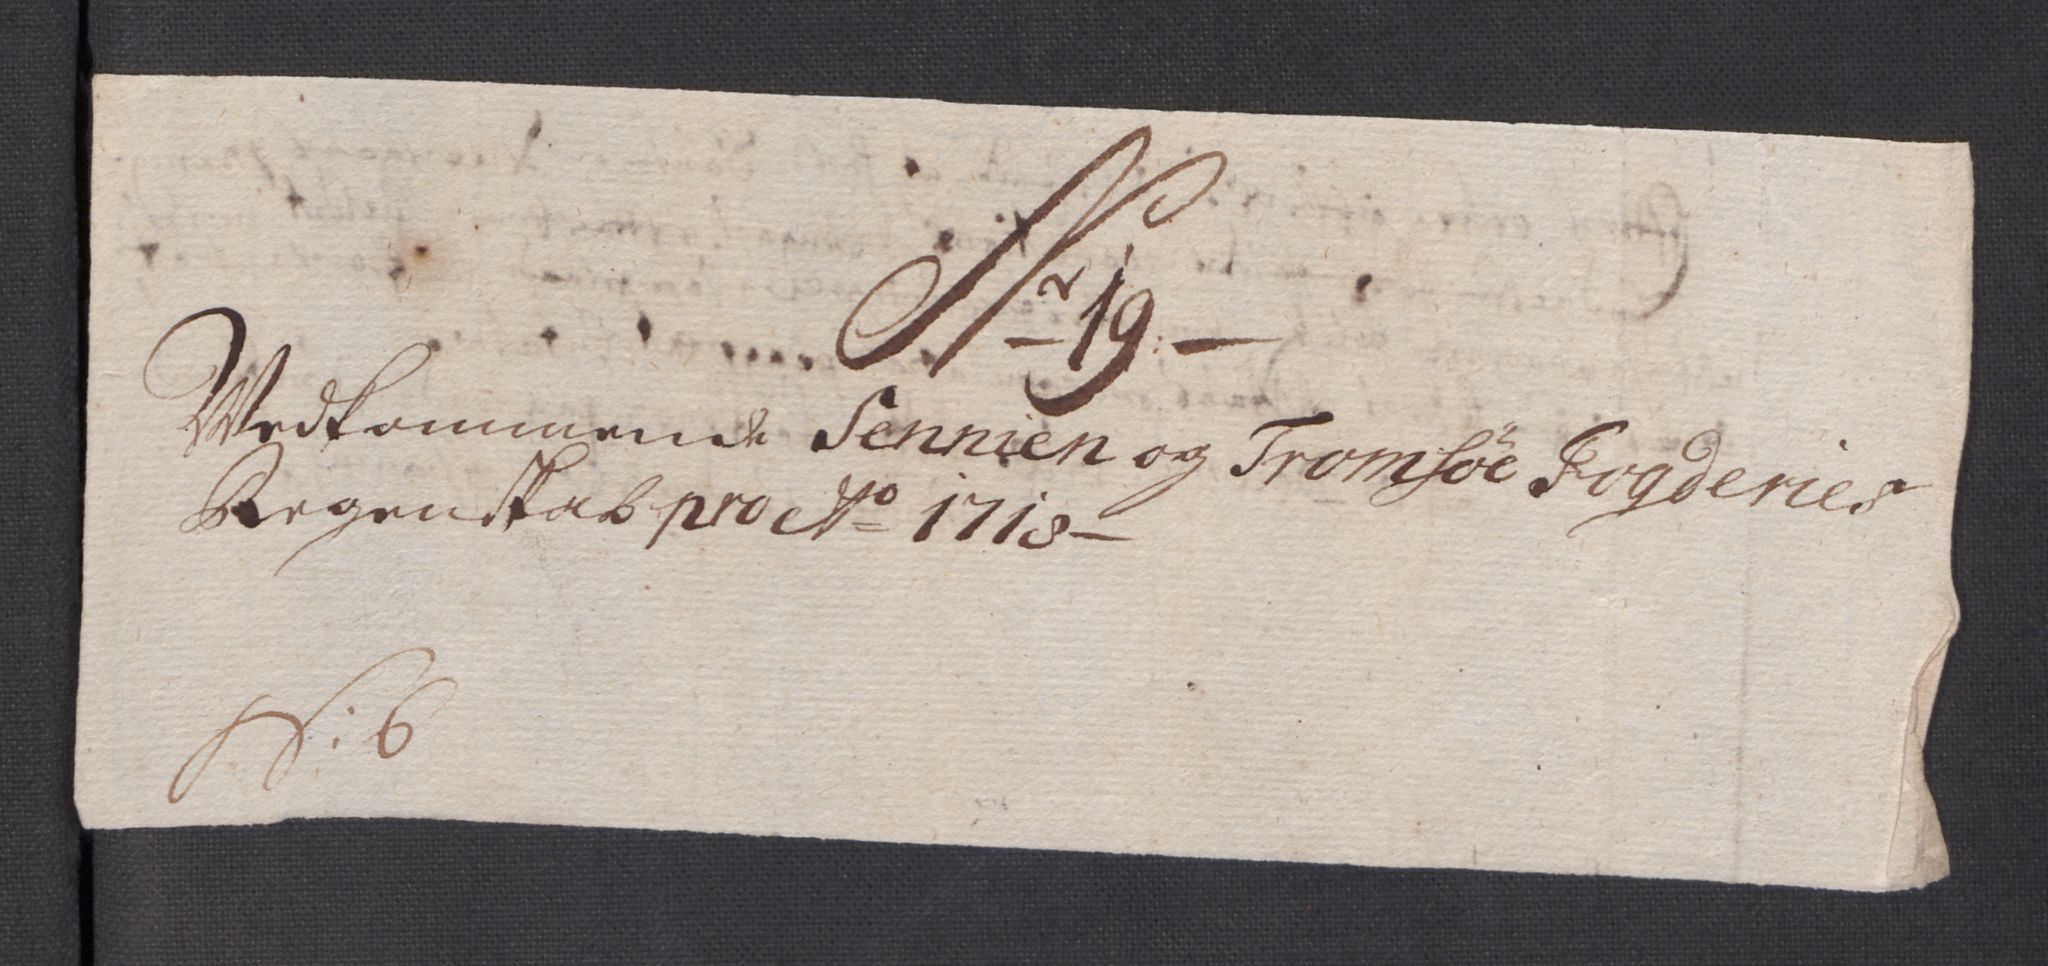 Nr 19:
Wedkommende Sennien og Tromsöe Fogderies
Regenskab pro Ao 1718
N: 6